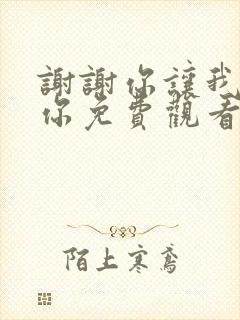 謝謝你讓我
你免費觀看
陌上寒鳶